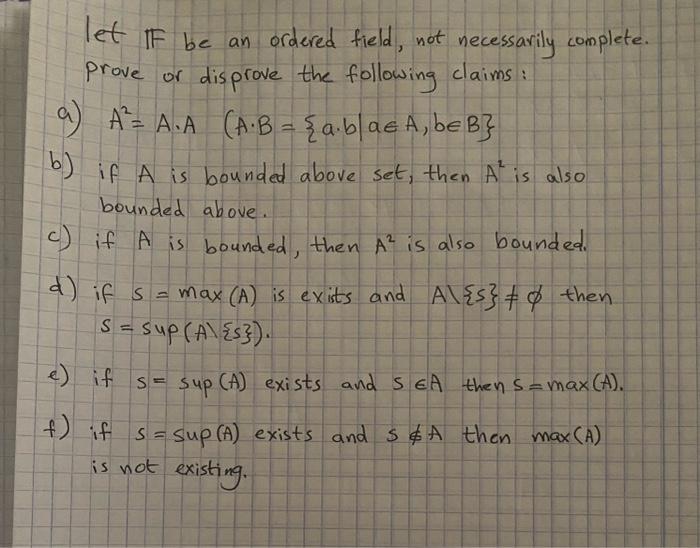 let F be an ordered field, not necessarily complete.
prove or disprove the following claims:
a) A²= A.A (A·B = {a.b|a∈A, b∈B}
b) if A is bounded above set, then A² is also
bounded above.
c) if A is bounded, then A² is also bounded.
d) if s = max(A) is exits and A\{s} ≠ ∅ then
s = sup(A\{s}).
e) if s= sup(A) exists and s ∈A then s=max(A).
f) if s=sup(A) exists and s ∉ A then max(A)
is not existing.